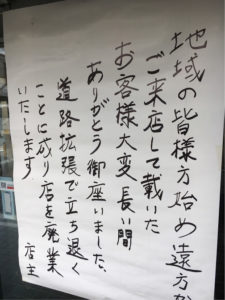 地域の皆様方始め遠方か
ご来店して載いた
お客様大変長い間
ありがとう御座いました、
道路拡張で立ち退く
ことに成り店を廃業
いたします
店主